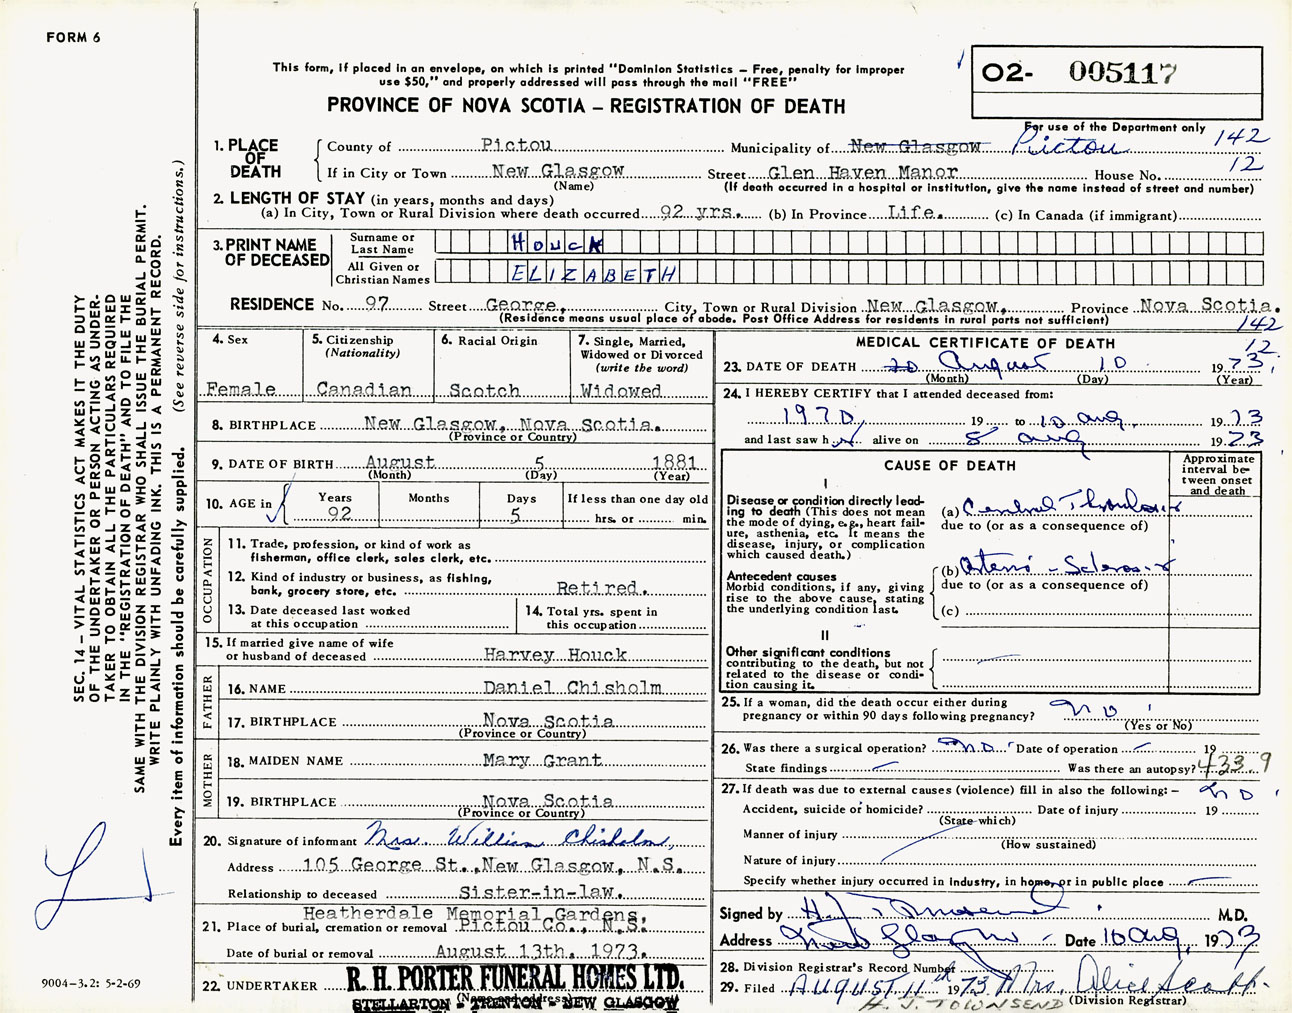 FORM 6
This form, if placed in an envelope, on which is printed "Dominion Statistics – Free, penalty for improper
use $50," and properly addressed will pass through the mail "FREE"
PROVINCE OF NOVA SCOTIA – REGISTRATION OF DEATH
02- 005117
For use of the Department only
1. PLACE OF DEATH
County of Pictou Municipality of New Glasgow Pictou 142
If in City or Town New Glasgow Street Glen Haven Manor House No. 12
(Name) (If death occurred in a hospital or institution, give the name instead of street and number)
2. LENGTH OF STAY (in years, months and days)
(a) In City, Town or Rural Division where death occurred 92 yrs. (b) In Province Life. (c) In Canada (if immigrant)
3. PRINT NAME OF DECEASED
Surname or Last Name HOUCK
All Given or Christian Names ELIZABETH
RESIDENCE No. 97 Street George, City, Town or Rural Division New Glasgow, Province Nova Scotia.
(Residence means usual place of abode. Post Office Address for residents in rural parts not sufficient)
142
12
4. Sex
Female
5. Citizenship
(Nationality)
Canadian
6. Racial Origin
Scotch
7. Single, Married,
Widowed or Divorced
(write the word)
Widowed
8. BIRTHPLACE New Glasgow, Nova Scotia.
(Province or Country)
9. DATE OF BIRTH August 5 1881
(Month) (Day) (Year)
10. AGE in
Years Months Days If less than one day old
92 5 hrs. or min.
OCCUPATION
11. Trade, profession, or kind of work as
fisherman, office clerk, sales clerk, etc.
12. Kind of industry or business, as fishing,
bank, grocery store, etc. Retired.
13. Date deceased last worked
at this occupation
14. Total yrs. spent in
this occupation
15. If married give name of wife
or husband of deceased Harvey Houck
FATHER
16. NAME Daniel Chisholm
17. BIRTHPLACE Nova Scotia
(Province or Country)
MOTHER
18. MAIDEN NAME Mary Grant
19. BIRTHPLACE Nova Scotia
(Province or Country)
20. Signature of informant Mrs. William Chisholm,
Address 105 George St., New Glasgow, N.S.
Relationship to deceased Sister-in-law.
Heatherdale Memorial Gardens,
21. Place of burial, cremation or removal Pictou Co., N.S.
Date of burial or removal August 13th. 1973.
22. UNDERTAKER R. H. PORTER FUNERAL HOMES LTD.
(Name and address)
STELLARTON - TRENTON - NEW GLASGOW
MEDICAL CERTIFICATE OF DEATH
23. DATE OF DEATH 10 August 10 1973
(Month) (Day) (Year)
24. I HEREBY CERTIFY that I attended deceased from:
1970, 19 to 10 Aug, 1973
and last saw her alive on 8 Aug 1973
CAUSE OF DEATH
Approximate
interval be-
tween onset
and death
I
Disease or condition directly lead-
ing to death (This does not mean
the mode of dying, e.g., heart fail-
ure, asthenia, etc. It means the
disease, injury, or complication
which caused death.)
(a) Cerebral Thrombosis
due to (or as a consequence of)
Antecedent causes
Morbid conditions, if any, giving
rise to the above cause, stating
the underlying condition last.
(b) Arterio-Sclerosis
due to (or as a consequence of)
(c)
II
Other significant conditions
contributing to the death, but not
related to the disease or condi-
tion causing it.
25. If a woman, did the death occur either during
pregnancy or within 90 days following pregnancy? No
(Yes or No)
26. Was there a surgical operation? No Date of operation 19
State findings Was there an autopsy? 433.9
27. If death was due to external causes (violence) fill in also the following:– No
Accident, suicide or homicide? Date of injury 19
(State which)
Manner of injury
(How sustained)
Nature of injury
Specify whether injury occurred in industry, in home, or in public place
Signed by H. J. Townsend M.D.
Address New Glasgow Date 10 Aug, 1973
28. Division Registrar's Record Number
29. Filed AUGUST 11th 1973 Mrs. Alice Scott.
H. J. TOWNSEND (Division Registrar)
SEC. 14 – VITAL STATISTICS ACT MAKES IT THE DUTY
OF THE UNDERTAKER OR PERSON ACTING AS UNDER-
TAKER TO OBTAIN ALL THE PARTICULARS REQUIRED
IN THE "REGISTRATION OF DEATH" AND TO FILE THE
SAME WITH THE DIVISION REGISTRAR WHO SHALL ISSUE THE BURIAL PERMIT.
WRITE PLAINLY WITH UNFADING INK. THIS IS A PERMANENT RECORD.
Every item of information should be carefully supplied. (See reverse side for instructions.)
9004-3.2: 5-2-69